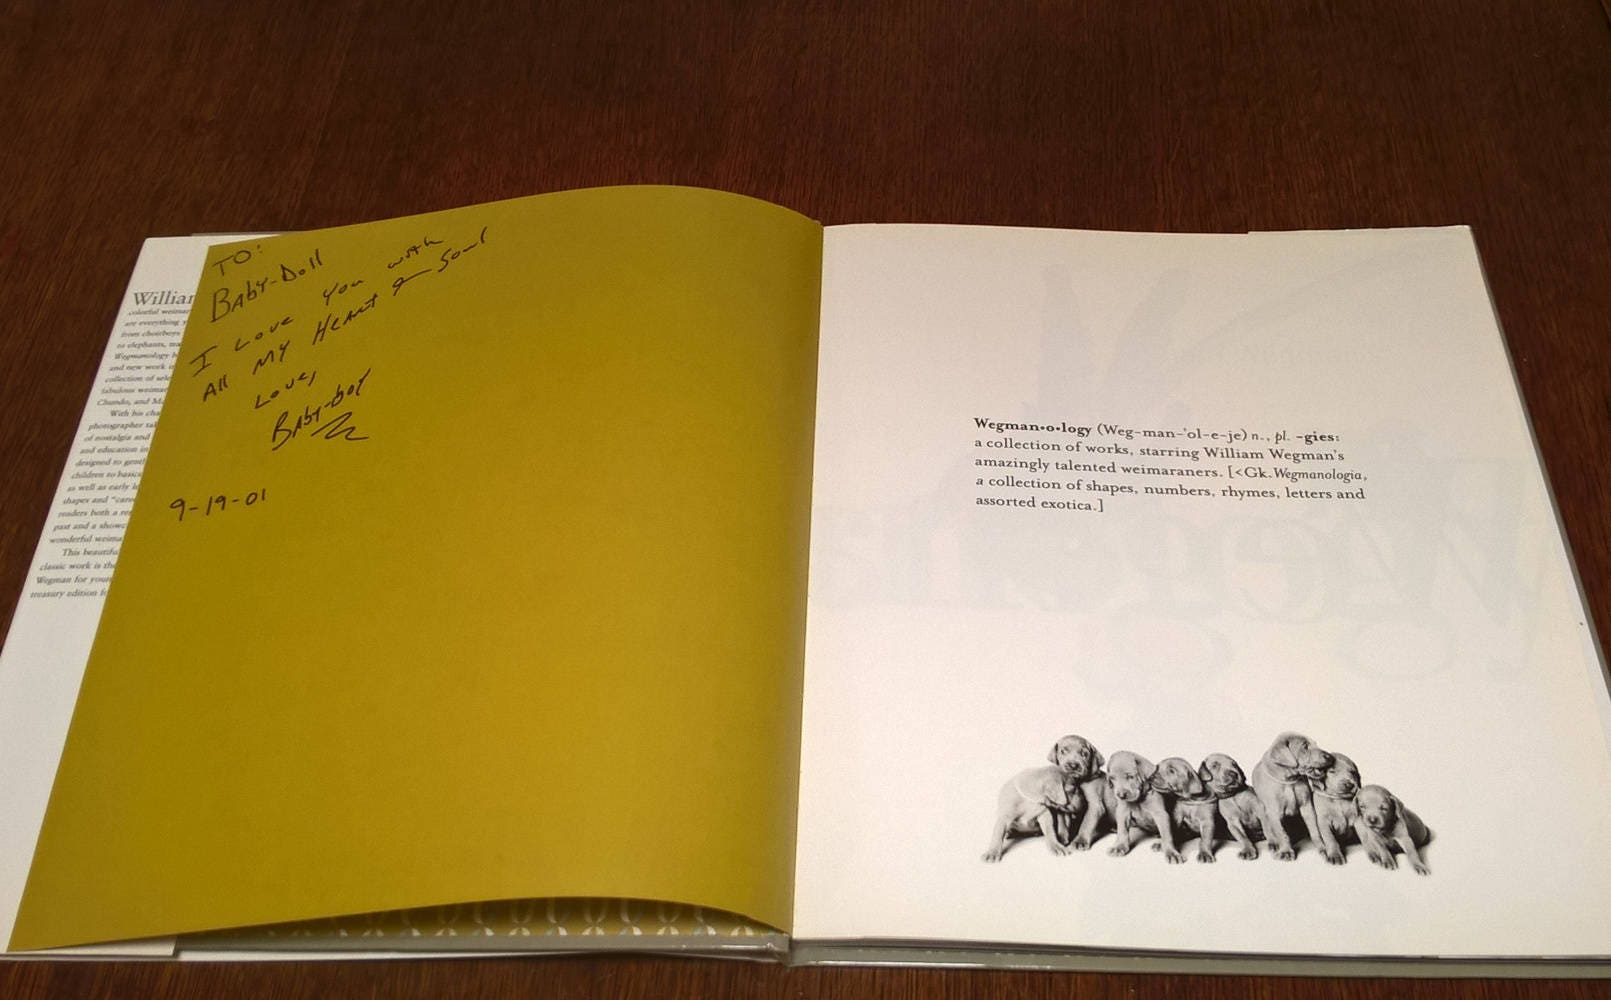 TO:
BAby-Doll
I Love You with
All My Heart & Soul
Love,
BAby-boy
9-19-01
William
colorful weima
are everything y
from choirboys
to elephants, ma
Wegmanology b
and new work i
collection of sel
fabulous weima
Chundo, and Ma
With his cha
photographer ta
of nostalgia and
and education in
designed to gent
children to basic
as well as early l
shapes and "care
readers both a re
past and a showc
wonderful weima
This beautiful
classic work is the
Wegman for your
treasury edition fo
Wegman•o•logy (Weg-man-'ol-e-je) n., pl. -gies:
a collection of works, starring William Wegman's
amazingly talented weimaraners. [<Gk. Wegmanologia,
a collection of shapes, numbers, rhymes, letters and
assorted exotica.]